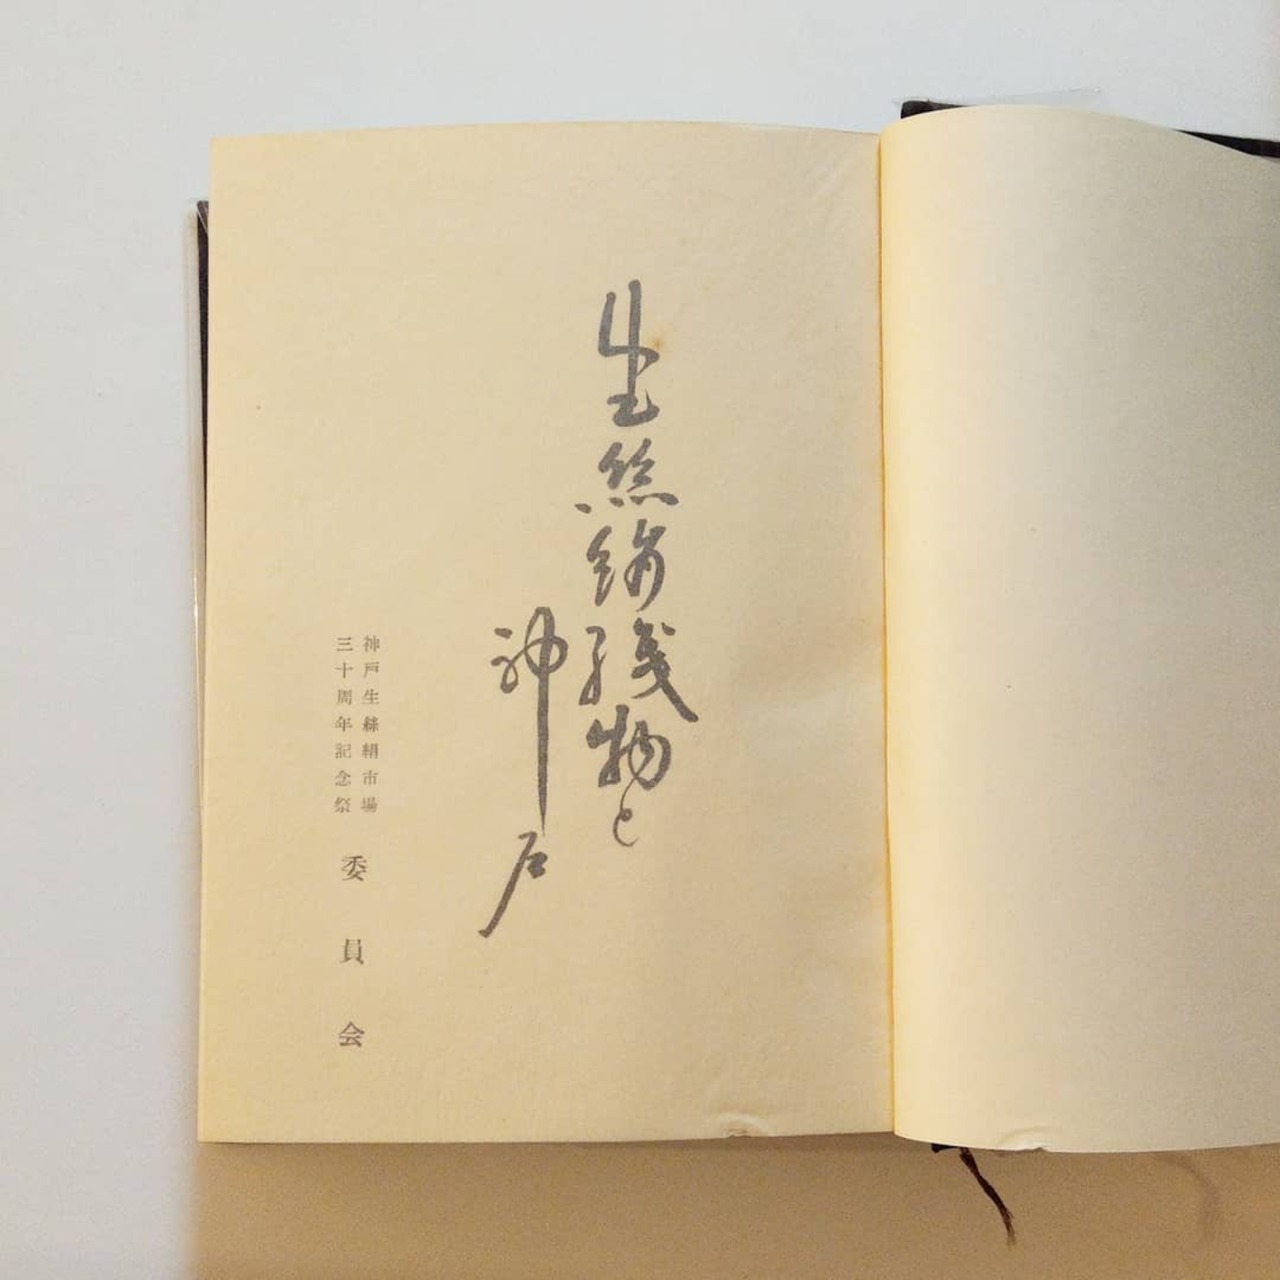 生絲絹織物と
神戸
神戸生絲絹市場
三十周年記念祭
委員会